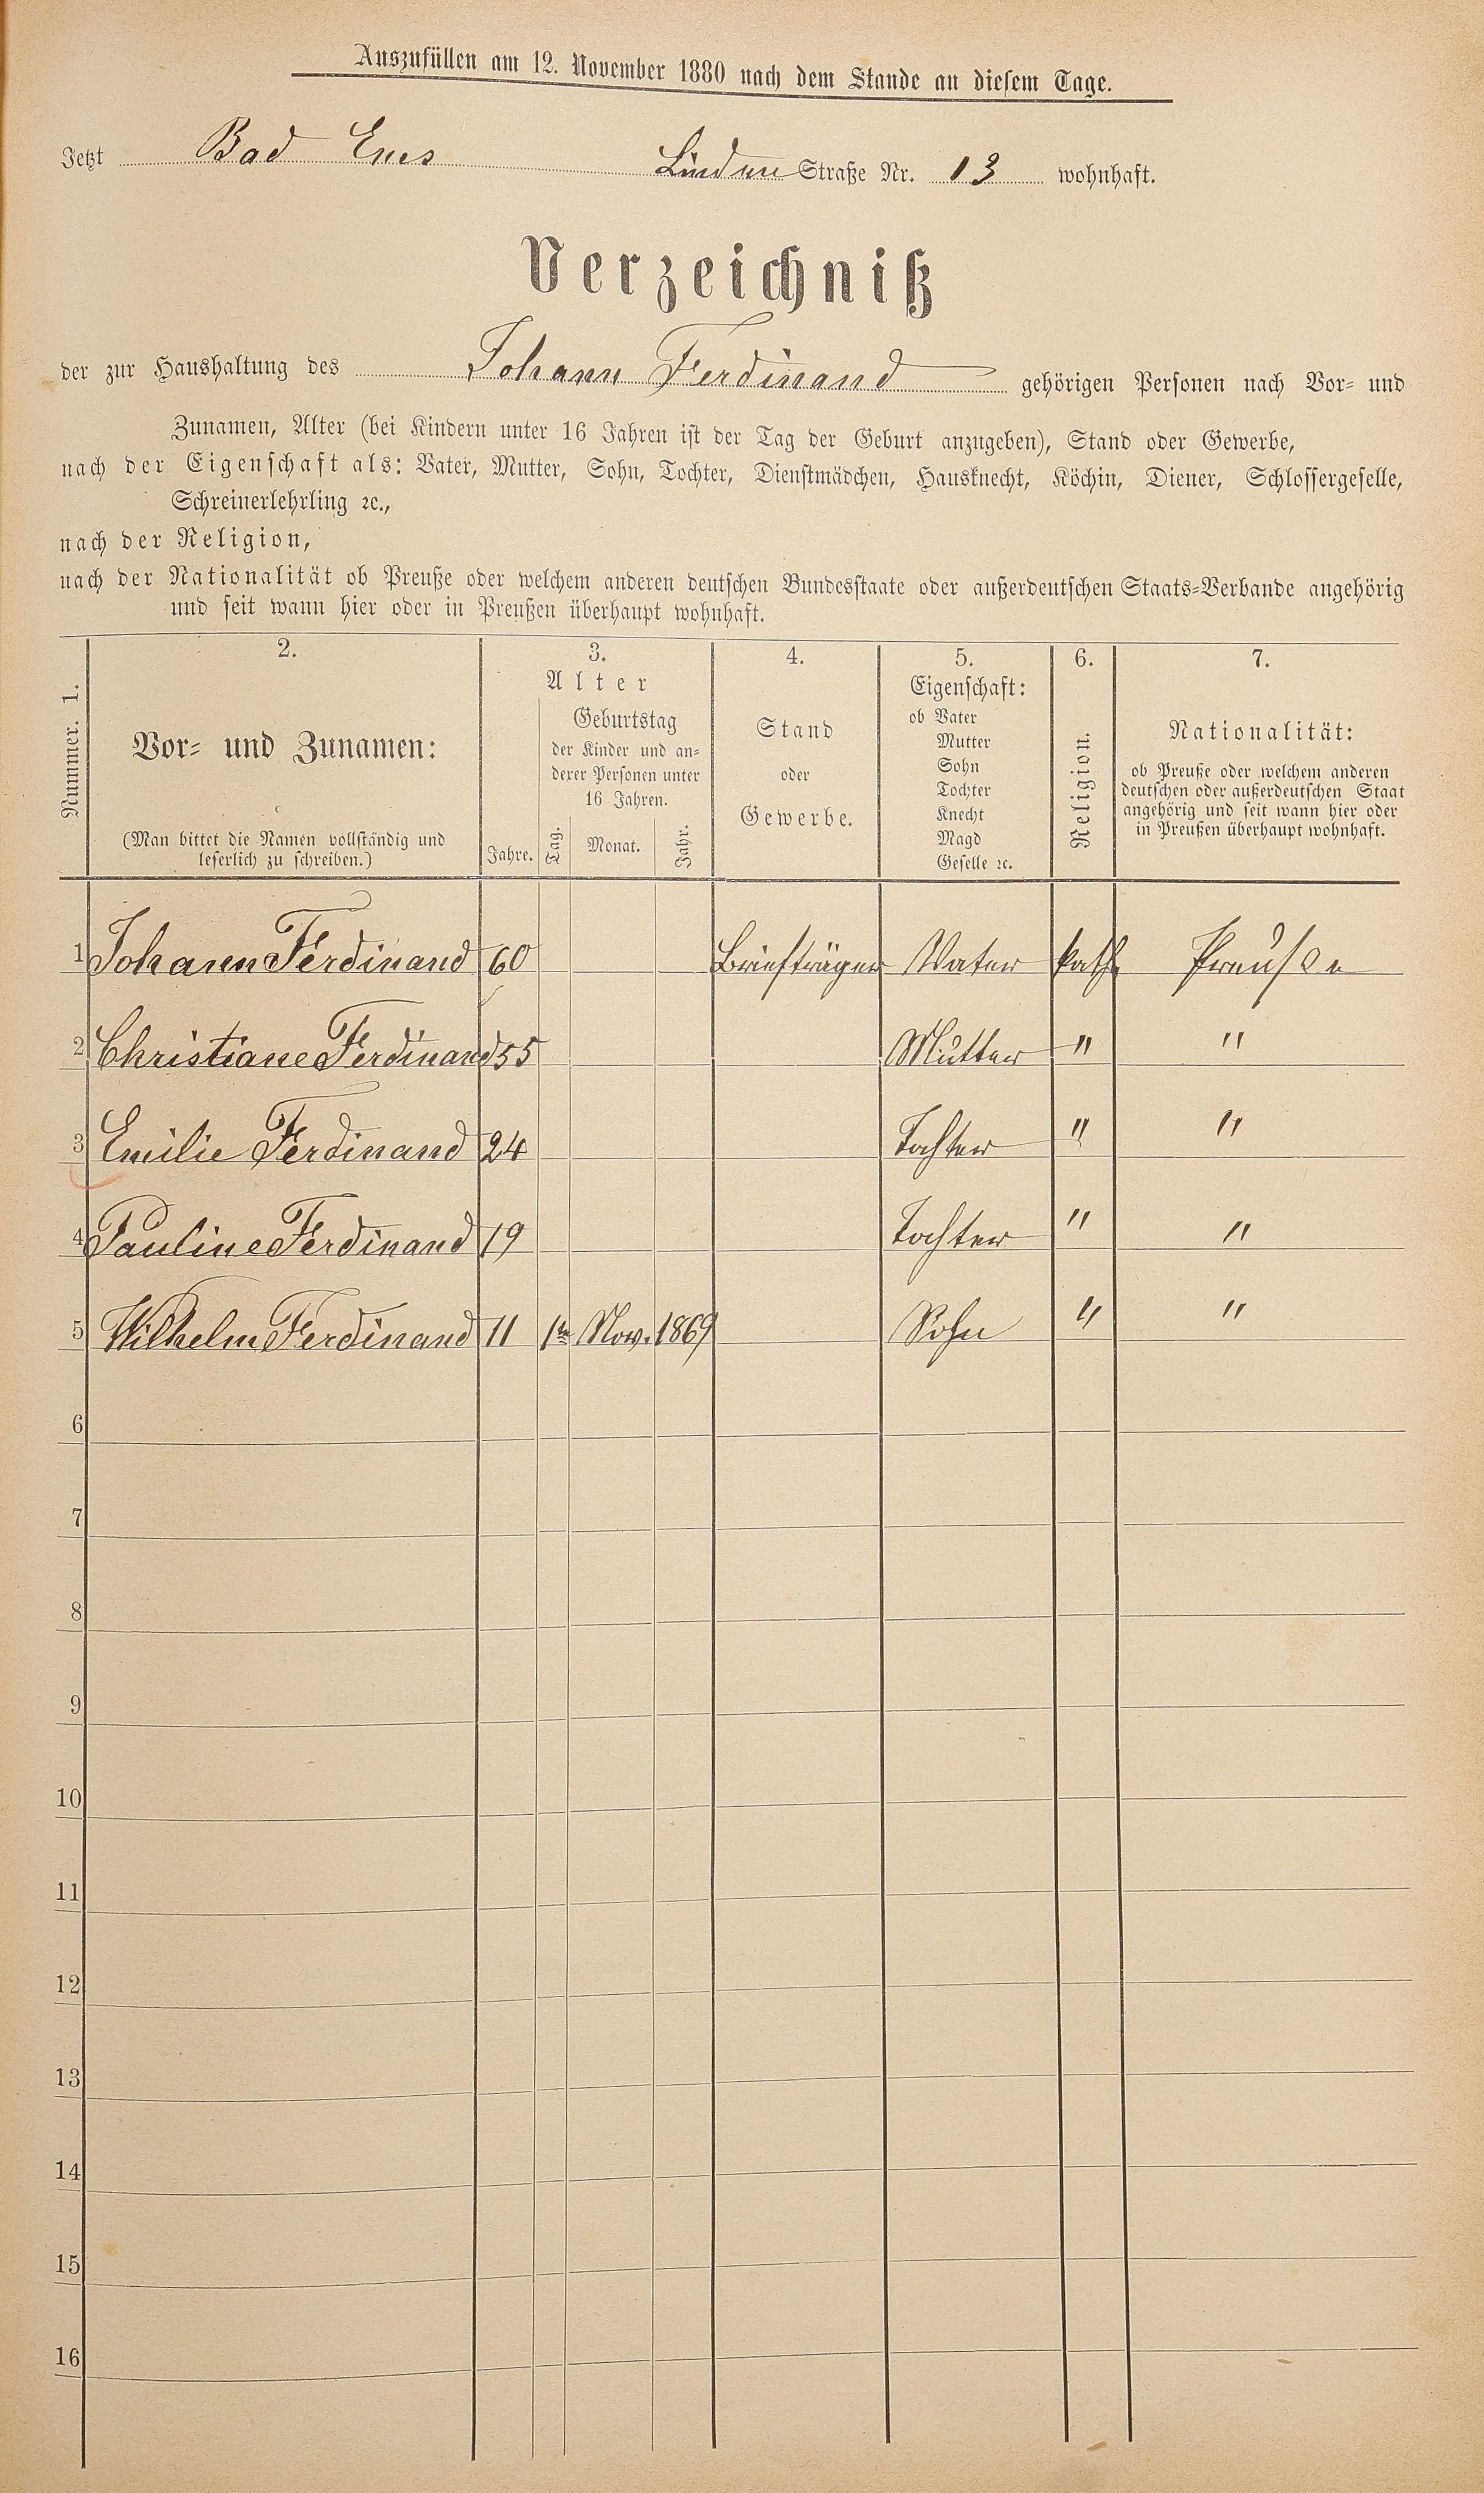 Auszufüllen am 12. November 1880 nach dem Stande an diesem Tage.
Jetzt Bad Ems Linden Straße Nr. 13 wohnhaft.
Verzeichniß
der zur Haushaltung des Johann Ferdinand gehörigen Personen nach Vor- und
Zunamen, Alter (bei Kindern unter 16 Jahren ist der Tag der Geburt anzugeben), Stand oder Gewerbe,
nach der Eigenschaft als: Vater, Mutter, Sohn, Tochter, Dienstmädchen, Hausknecht, Köchin, Diener, Schlossergeselle,
Schreinerlehrling ꝛc.,
nach der Religion,
nach der Nationalität ob Preuße oder welchem anderen deutschen Bundesstaate oder außerdeutschen Staats-Verbande angehörig
und seit wann hier oder in Preußen überhaupt wohnhaft.
Nummer. 1.
2.
Vor- und Zunamen:
(Man bittet die Namen vollständig und
leserlich zu schreiben.)
3.
Alter
Jahre.
Geburtstag
der Kinder und an-
derer Personen unter
16 Jahren.
Tag. Monat. Jahr.
4.
Stand
oder
Gewerbe.
5.
Eigenschaft:
ob Vater
Mutter
Sohn
Tochter
Knecht
Magd
Geselle ꝛc.
6.
Religion.
7.
Nationalität:
ob Preuße oder welchem anderen
deutschen oder außerdeutschen Staat
angehörig und seit wann hier oder
in Preußen überhaupt wohnhaft.
1 Johann Ferdinand 60 Briefträger Vater kath. Preuße
2 Christiane Ferdinand 55 Mutter " "
3 Emilie Ferdinand 24 Tochter " "
4 Pauline Ferdinand 19 Tochter " "
5 Wilhelm Ferdinand 11 1te Nov. 1869 Sohn " "
6
7
8
9
10
11
12
13
14
15
16